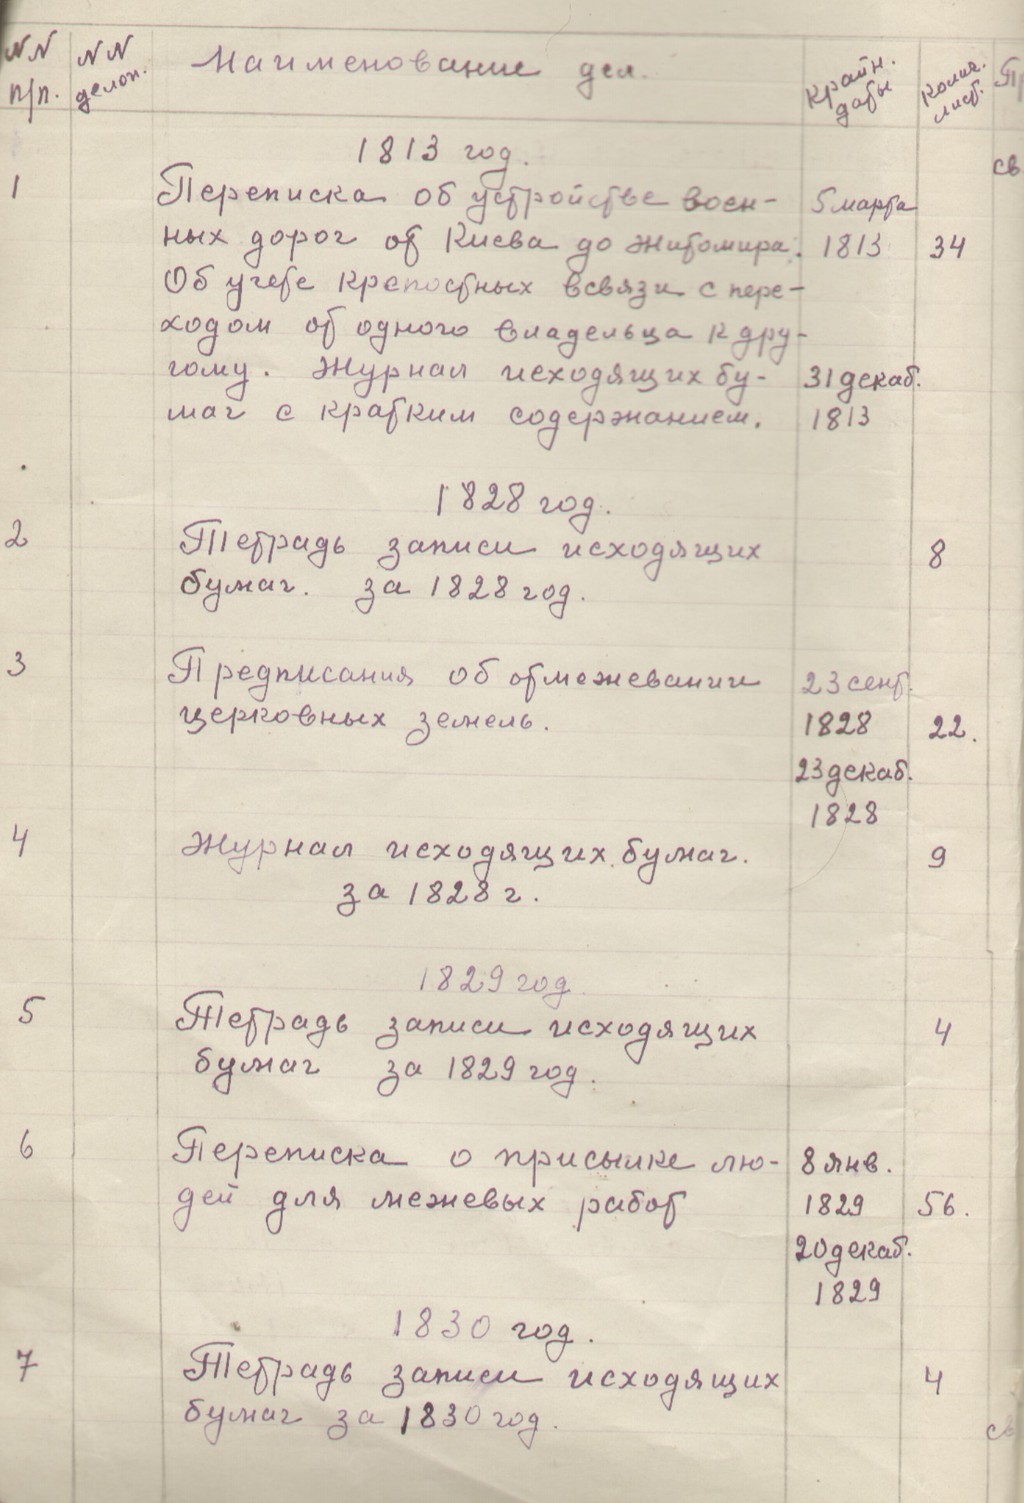 NN п/п. NN делоп. Наименование дел. Крайн. даты Колич. лист.
1813 год.
св
1 Переписка об устройстве воен- 5 марта
ных дорог от Киева до Житомира. 1813 34
Об учете крепостных всвязи с пере-
ходом от одного владельца к дру-
гому. Журнал исходящих бу- 31 декаб.
маг с кратким содержанием. 1813
1828 год.
2 Тетрадь записи исходящих 8
бумаг. за 1828 год.
3 Предписания об отмежевании 23 сент.
церковных земель. 1828 22.
23 декаб.
1828
4 Журнал исходящих бумаг. 9
за 1828 г.
1829 год
5 Тетрадь записи исходящих 4
бумаг за 1829 год.
6 Переписка о присылке лю- 8 янв.
дей для межевых работ 1829 56.
20 декаб.
1829
1830 год.
7 Тетрадь записи исходящих 4
бумаг за 1830 год.